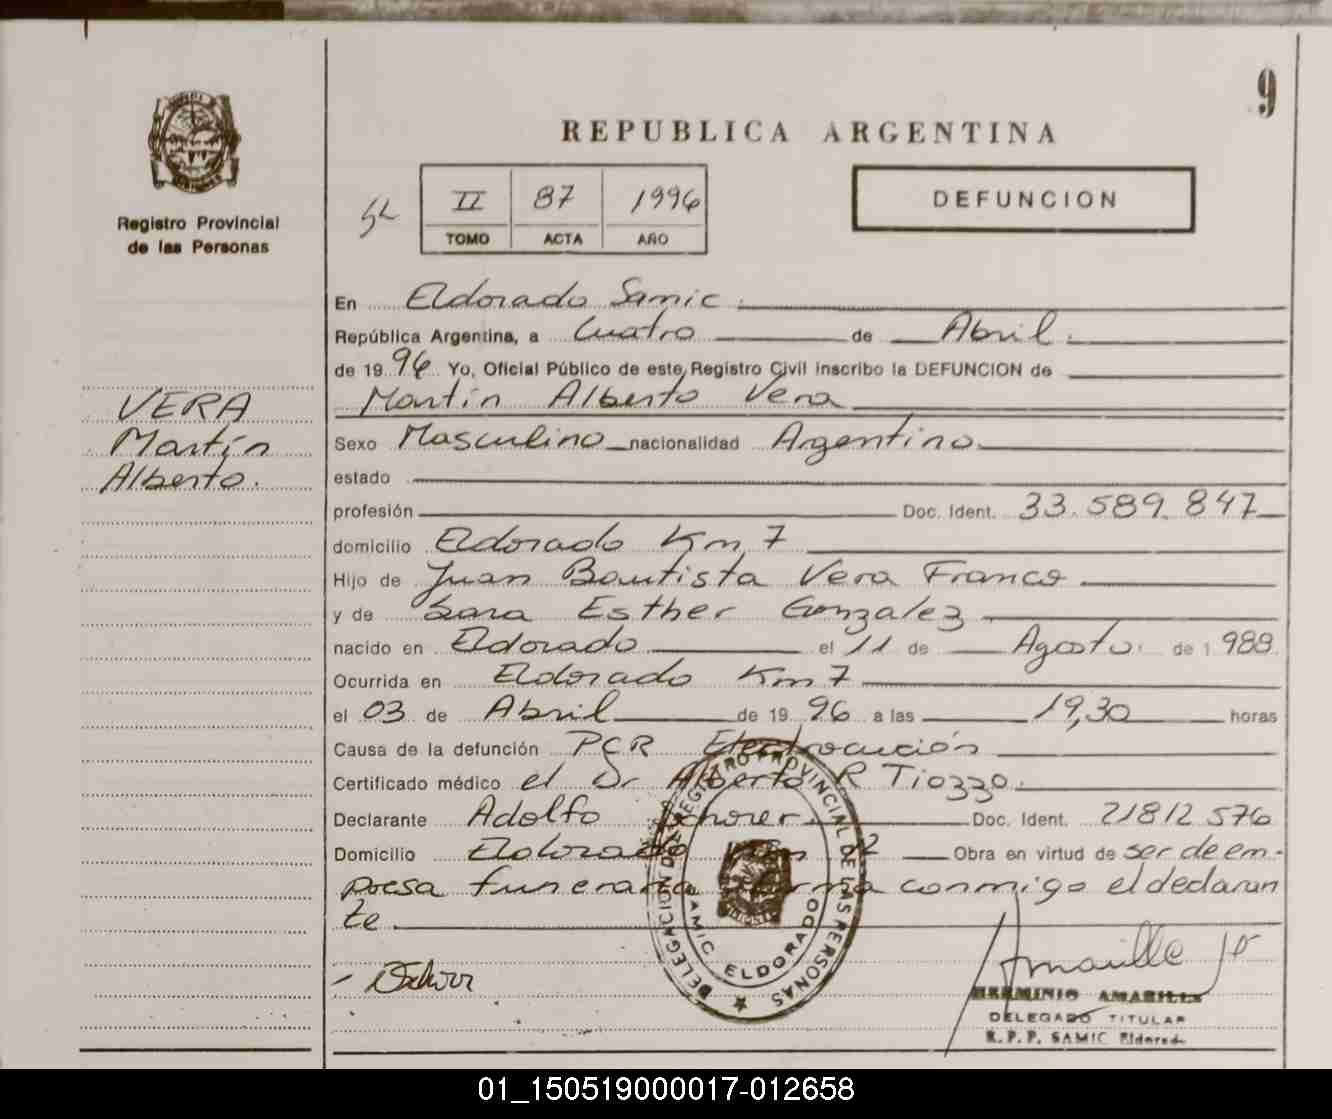 9
REPUBLICA ARGENTINA
Registro Provincial
de las Personas
II 87 1996
TOMO ACTA AÑO
DEFUNCION
En Eldorado Samic
República Argentina, a Cuatro de Abril
de 1996 Yo, Oficial Público de este Registro Civil inscribo la DEFUNCION de
Martín Alberto Vera
VERA
Martín
Alberto.
Sexo Masculino nacionalidad Argentino
estado
profesión Doc. Ident. 33.589.847
domicilio Eldorado Km 7
Hijo de Juan Bautista Vera Franco
y de Sara Esther Gonzalez
nacido en Eldorado el 11 de Agosto de 1988
Ocurrida en Eldorado Km 7
el 03 de Abril de 1996 a las 19,30 horas
Causa de la defunción PCR Electrocución
Certificado médico el Dr Alberto R Tiozzo.
Declarante Adolfo Doc. Ident. 21812576
Domicilio Eldorado Km 2 Obra en virtud de ser de em-
presa funeraria firma conmigo el declaran
te
DELEGACION DEL REGISTRO PROVINCIAL DE LAS PERSONAS
SAMIC ELDORADO
HERMINIO AMARILLA
DELEGADO TITULAR
R.P.P. SAMIC Eldorado
01_150519000017-012658